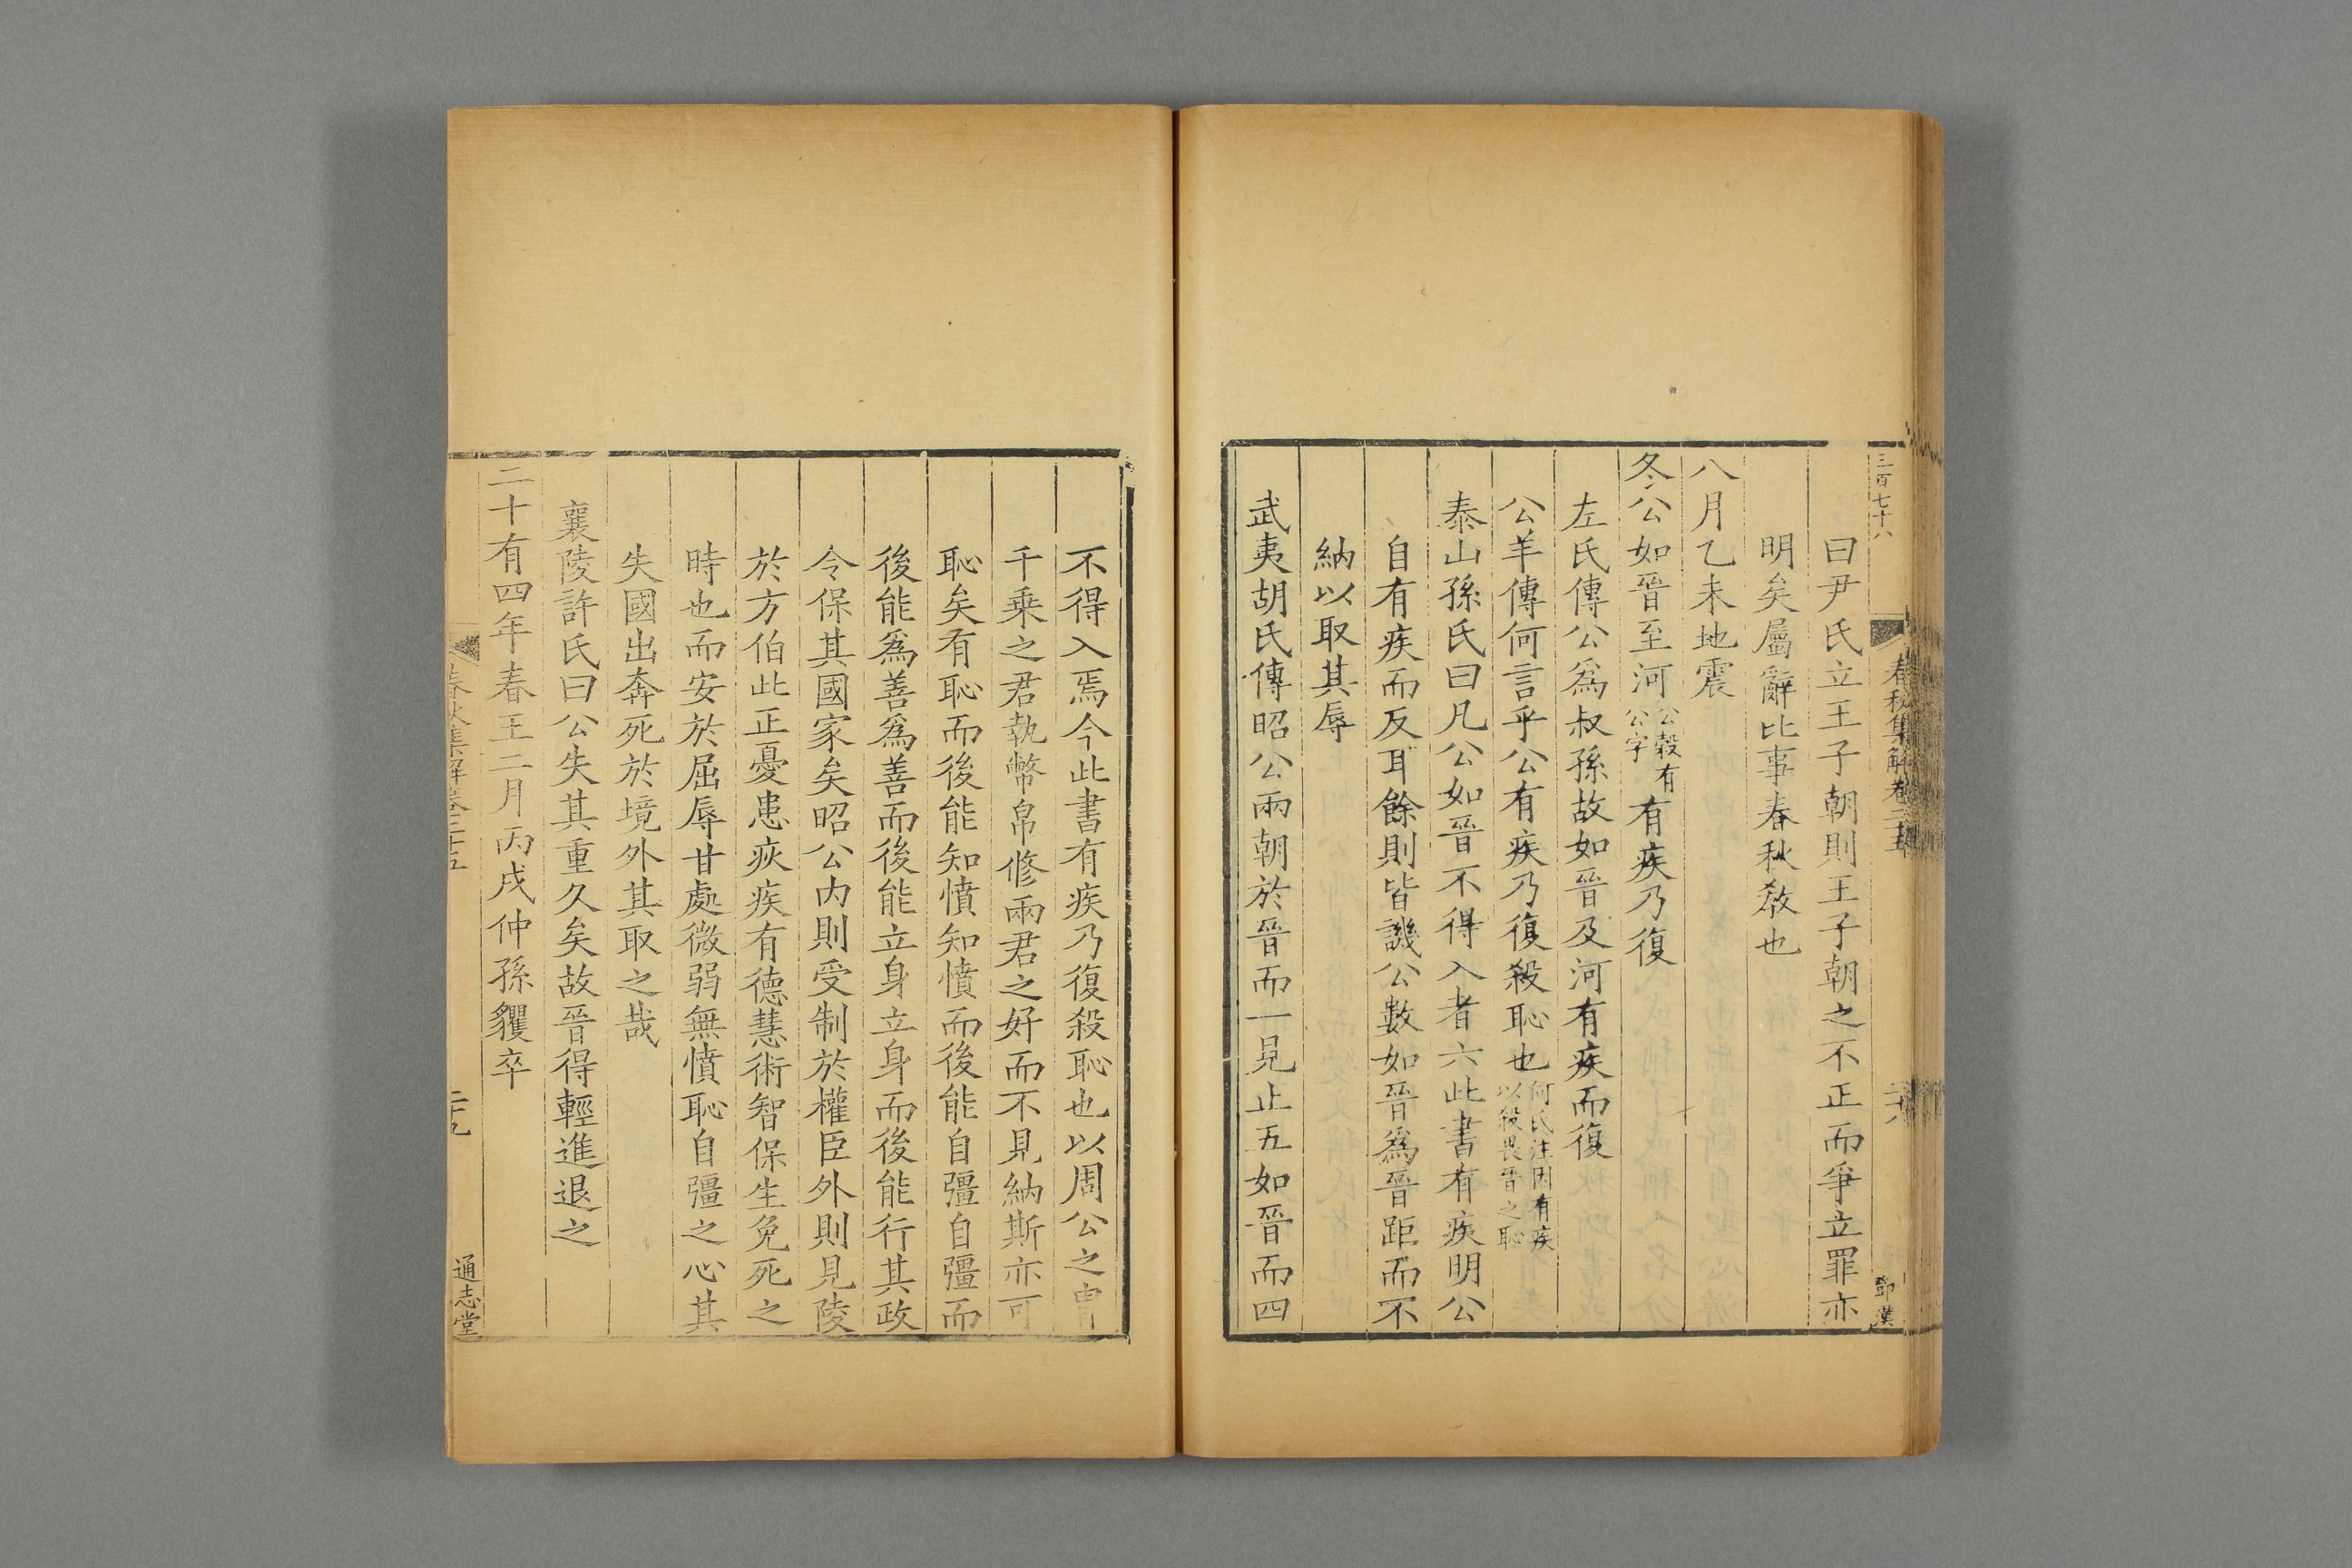 三百七十八
春秋集解卷二十五
二十八
鄧漢
曰尹氏立王子朝則王子朝之不正而爭立罪亦
明矣屬辭比事春秋教也
八月乙未地震
冬公如晉至河公穀有公字有疾乃復
左氏傳公爲叔孫故如晉及河有疾而復
公羊傳何言乎公有疾乃復殺恥也何氏注因有疾以殺畏晉之恥
泰山孫氏曰凡公如晉不得入者六此書有疾明公
自有疾而反耳餘則皆譏公數如晉爲晉距而不
納以取其辱
武夷胡氏傳昭公兩朝於晉而一見止五如晉而四
不得入焉今此書有疾乃復殺恥也以周公之冑
千乗之君執幣帛修兩君之好而不見納斯亦可
恥矣有恥而後能知憤知憤而後能自彊自彊而
後能爲善爲善而後能立身立身而後能行其政
令保其國家矣昭公内則受制於權臣外則見陵
於方伯此正憂患疢疾有德慧術智保生免死之
時也而安於屈辱甘處微弱無憤恥自彊之心其
失國出奔死於境外其取之哉
襄陵許氏曰公失其重久矣故晉得輕進退之
二十有四年春王二月丙戌仲孫貜卒
春秋集解卷二十五
二十九
通志堂